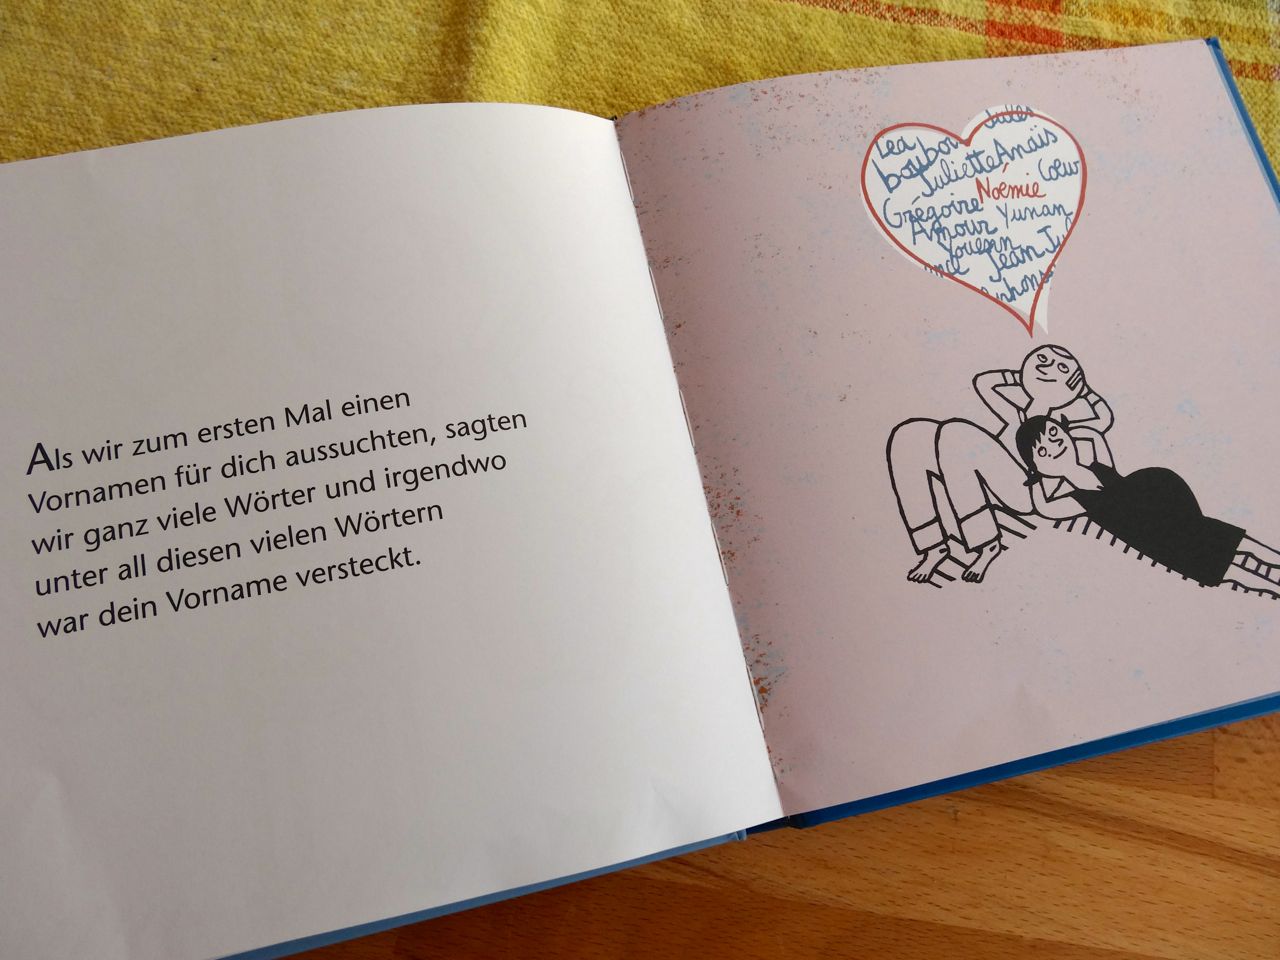 Als wir zum ersten Mal einen
Vornamen für dich aussuchten, sagten
wir ganz viele Wörter und irgendwo
unter all diesen vielen Wörtern
war dein Vorname versteckt.
Jules
Léa
boubou
Juliette Anaïs
Noémie Coeur
Grégoire Yunan
Amour
Youenn
Jean Jul